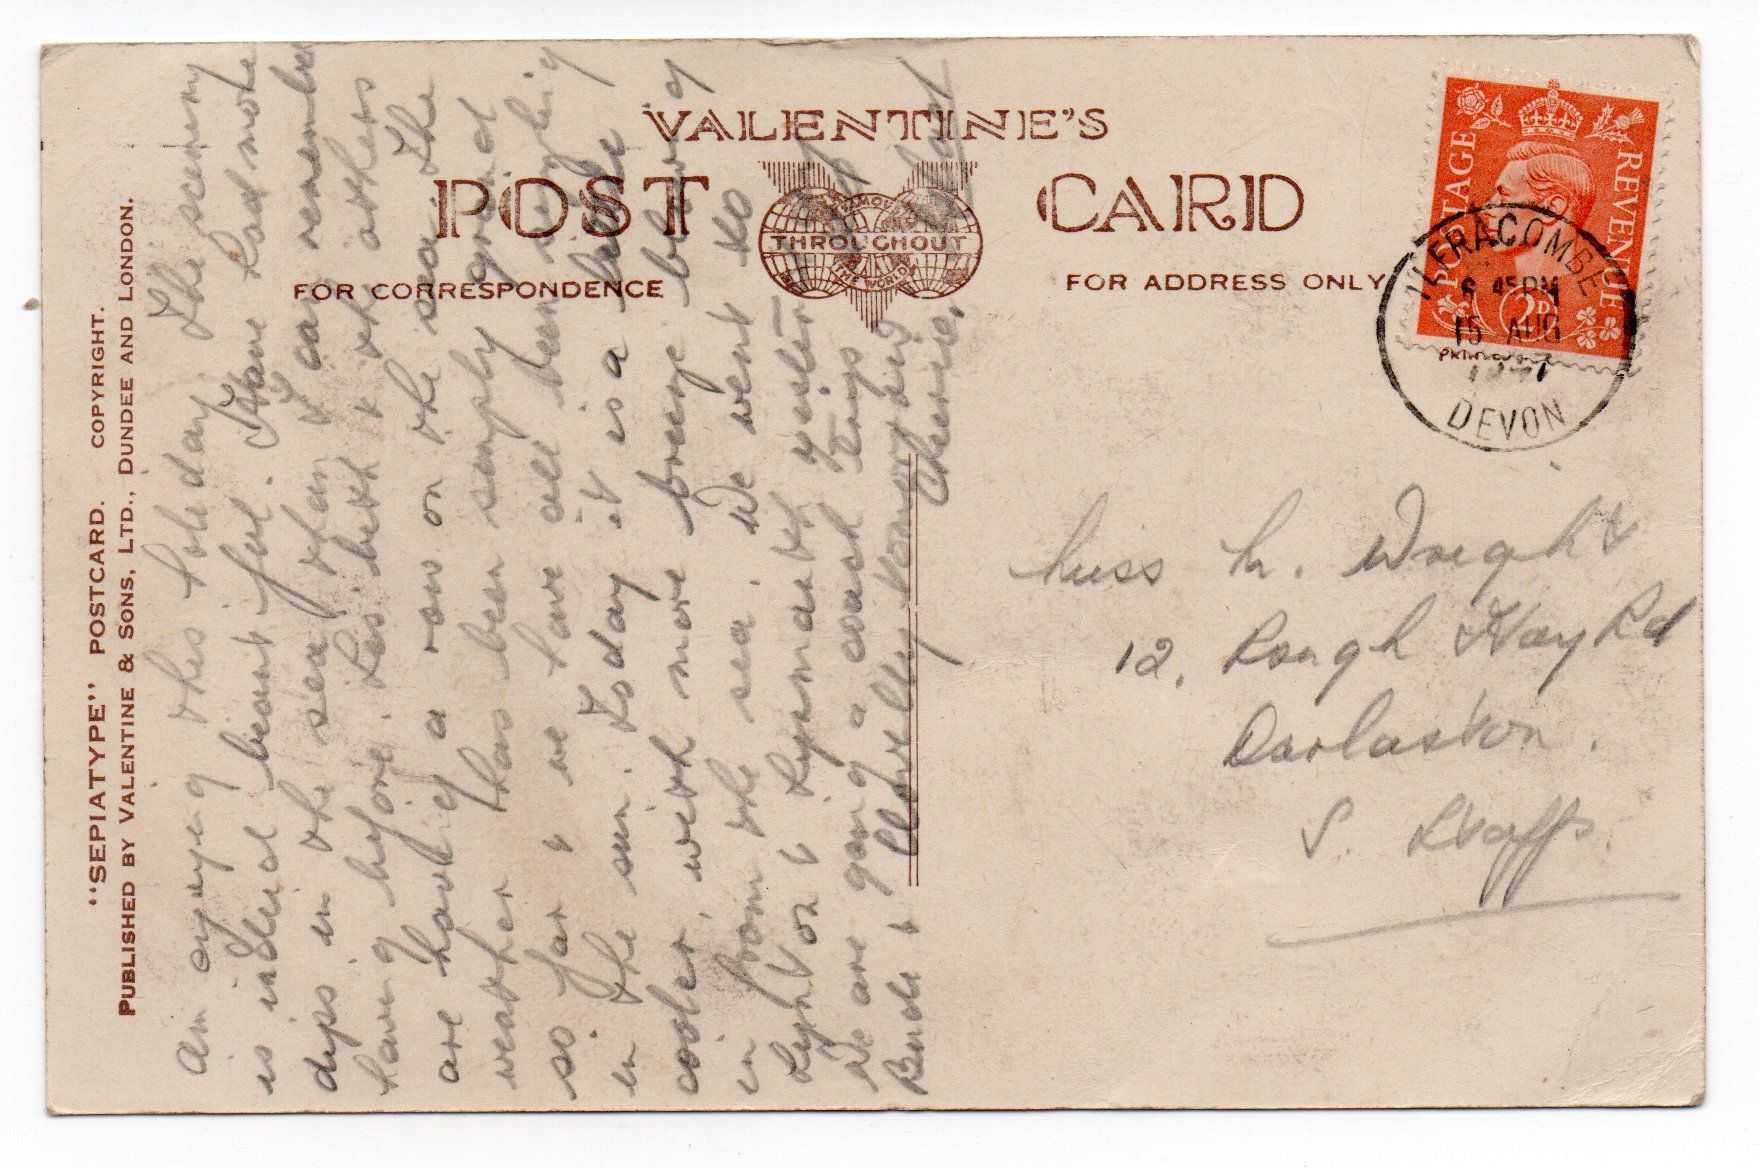 VALENTINE'S
POST CARD
FAMOUS THROUGHOUT THE WORLD
FOR CORRESPONDENCE
FOR ADDRESS ONLY
"SEPIATYPE" POSTCARD. COPYRIGHT.
PUBLISHED BY VALENTINE & SONS, LTD., DUNDEE AND LONDON.
POSTAGE REVENUE
2D
ILFRACOMBE
6 45 PM
15 AUG
DEVON
Am enjoying this holiday. The scenery
is indeed beautiful. Have had more
dips in the sea than I can remember
having before. Les, Beth & the others
are having a row on the sea. The
weather has been simply grand
so far & we have all been sizzling
in the sun. Today it is a little
cooler, with more breeze blowing
in from the sea. We went to
Lynton & Lynmouth yesterd
We are going a coach trip to
Bude & Clovelly tomorrow
Cheerio.
Miss M. Wright
12, Rough Hay Rd
Darlaston.
S. Staffs.